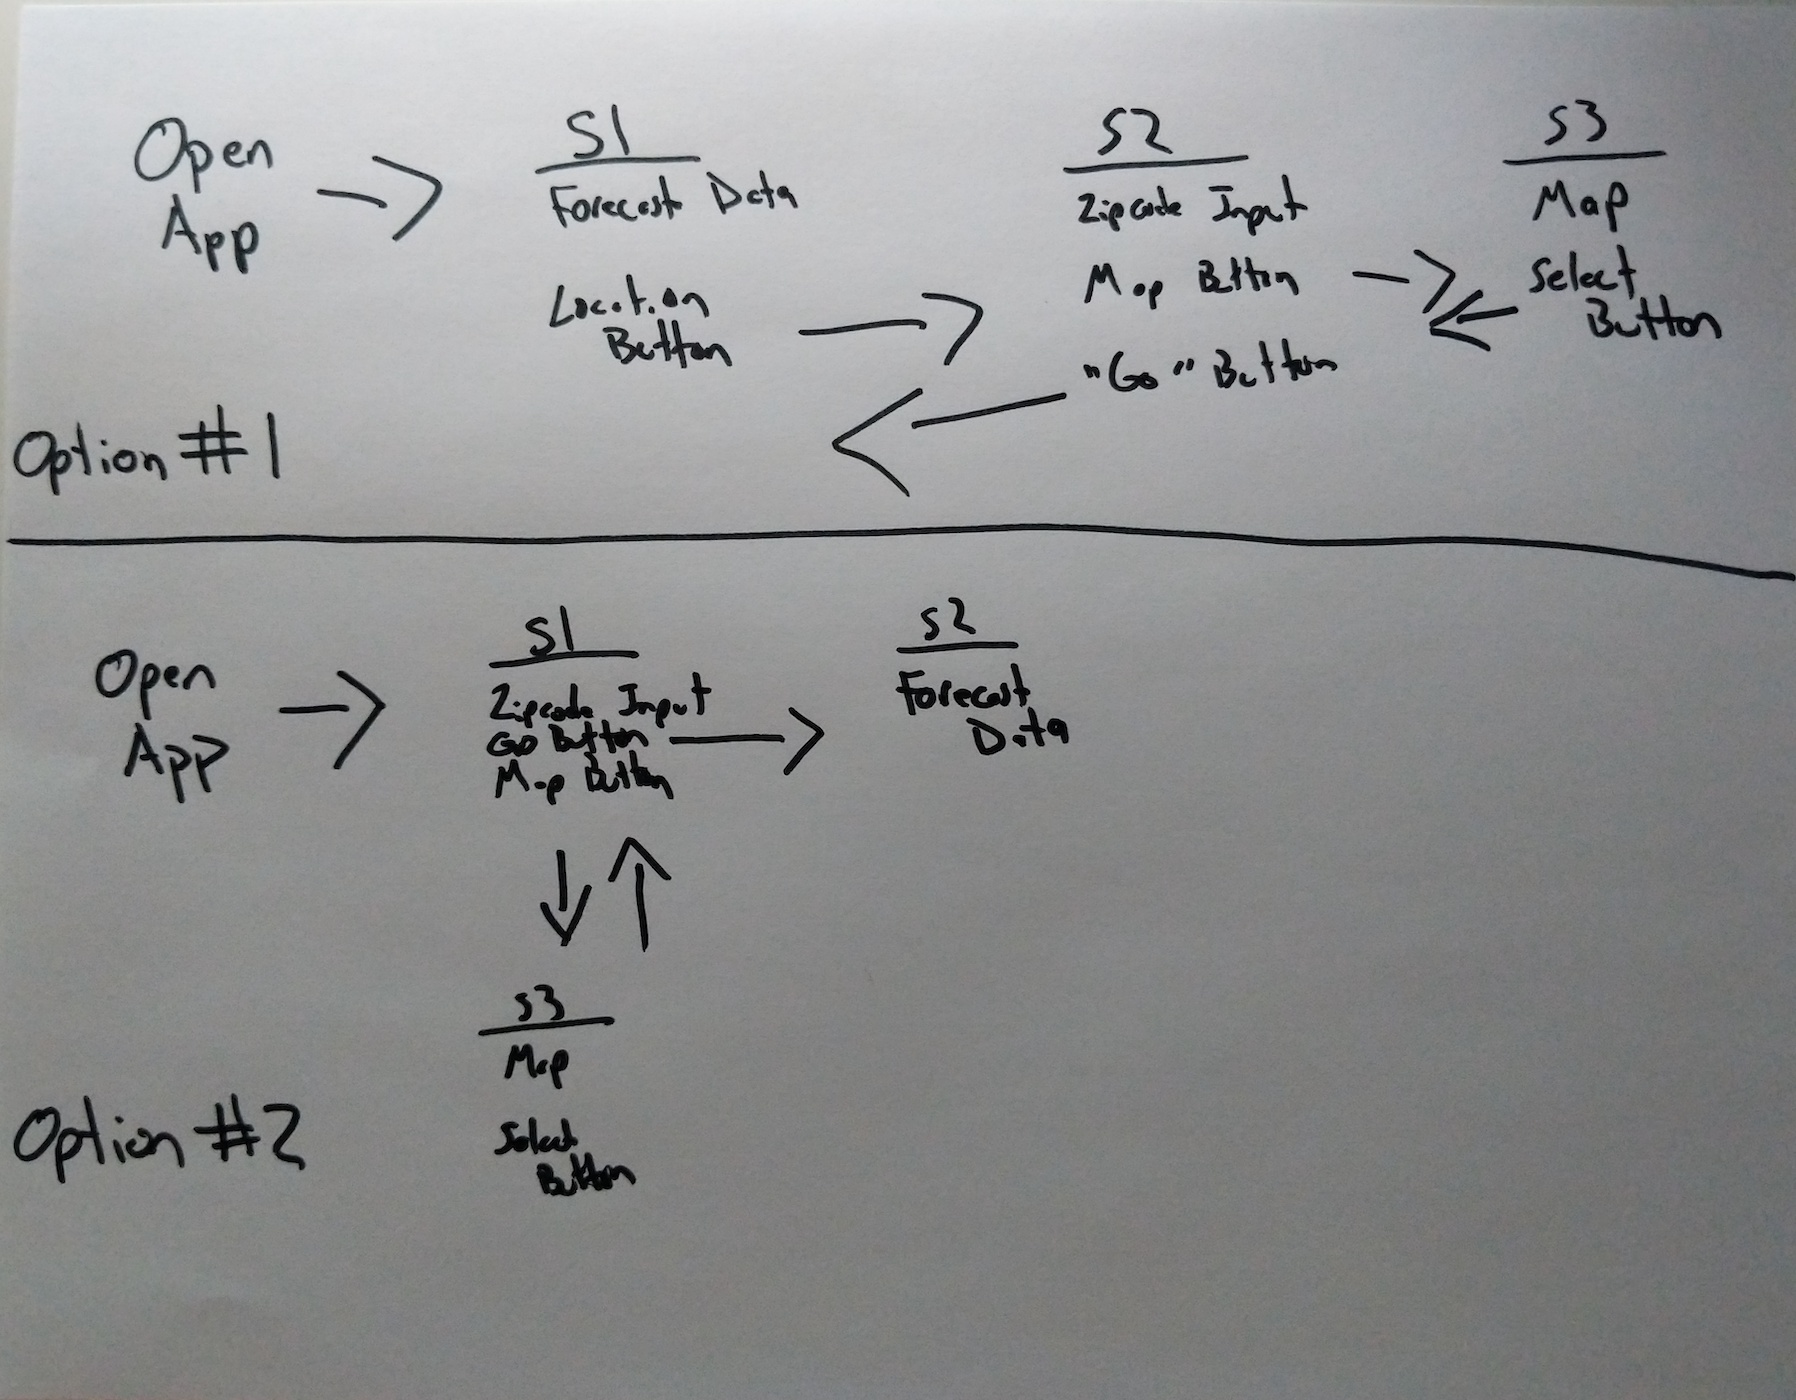 Open
App
S1
Forecast Data
Location
Button
S2
Zipcode Input
Map Button
"Go" Button
S3
Map
Select
Button
Option #1
Open
App
S1
Zipcode Input
Go Button
Map Button
S2
Forecast
Data
S3
Map
Select
Button
Option #2